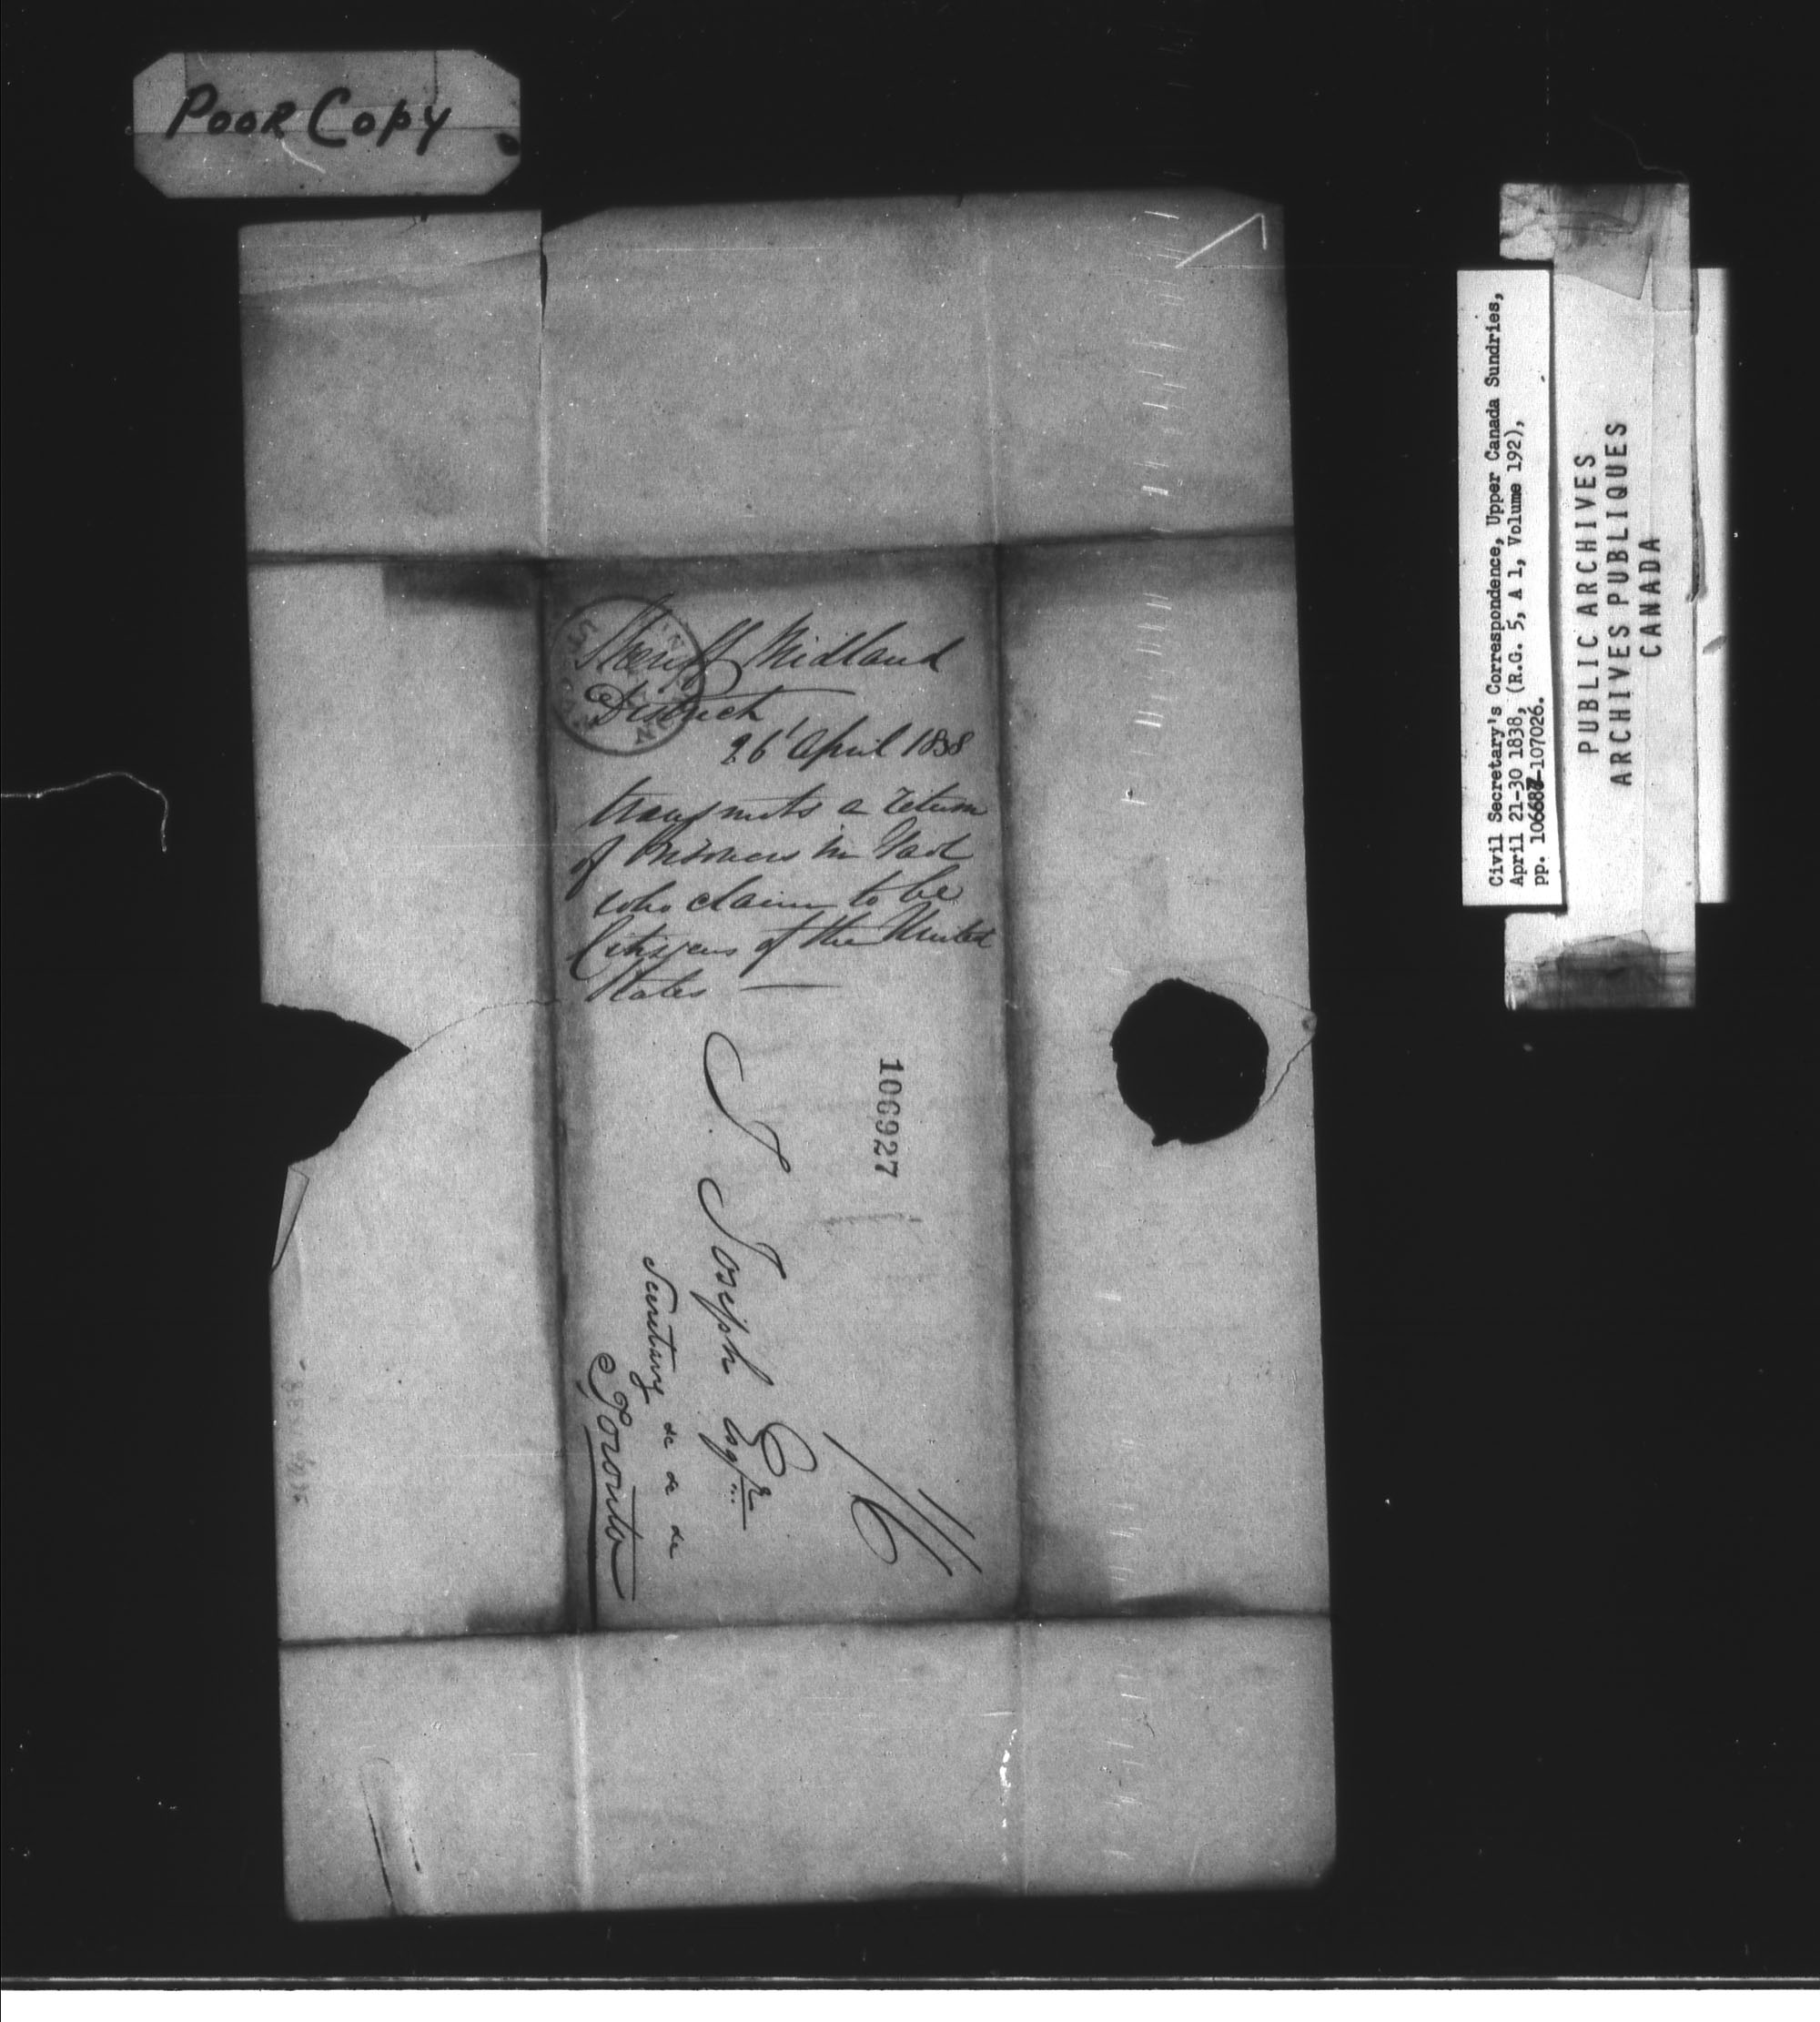 Poor Copy
Sheriff Midland
District
26 April 1838
transmits a return
of Prisoners in Gaol
who claim to be
Citizens of the United
States —
106927
J Joseph Esqr
Secretary &c &c &c
Toronto
1/6
Civil Secretary's Correspondence, Upper Canada Sundries,
April 21-30 1838, (R.G. 5, A 1, Volume 192),
pp. 106687-107026.
PUBLIC ARCHIVES
ARCHIVES PUBLIQUES
CANADA